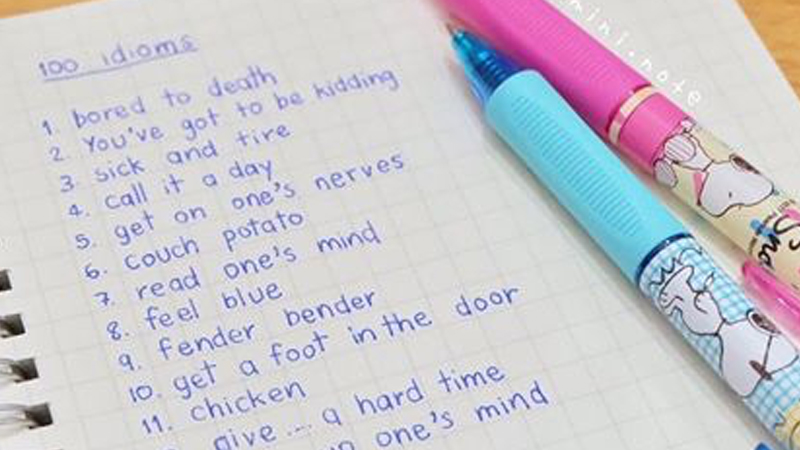 100 idioms
1. bored to death
2. You've got to be kidding
3 sick and tire
4. call it a day
5. get on one's nerves
6. couch potato
7. read one's mind
8. feel blue
9. fender bender
10. get a foot in the door
11. chicken
give ... a hard time
one's mind
mini·note